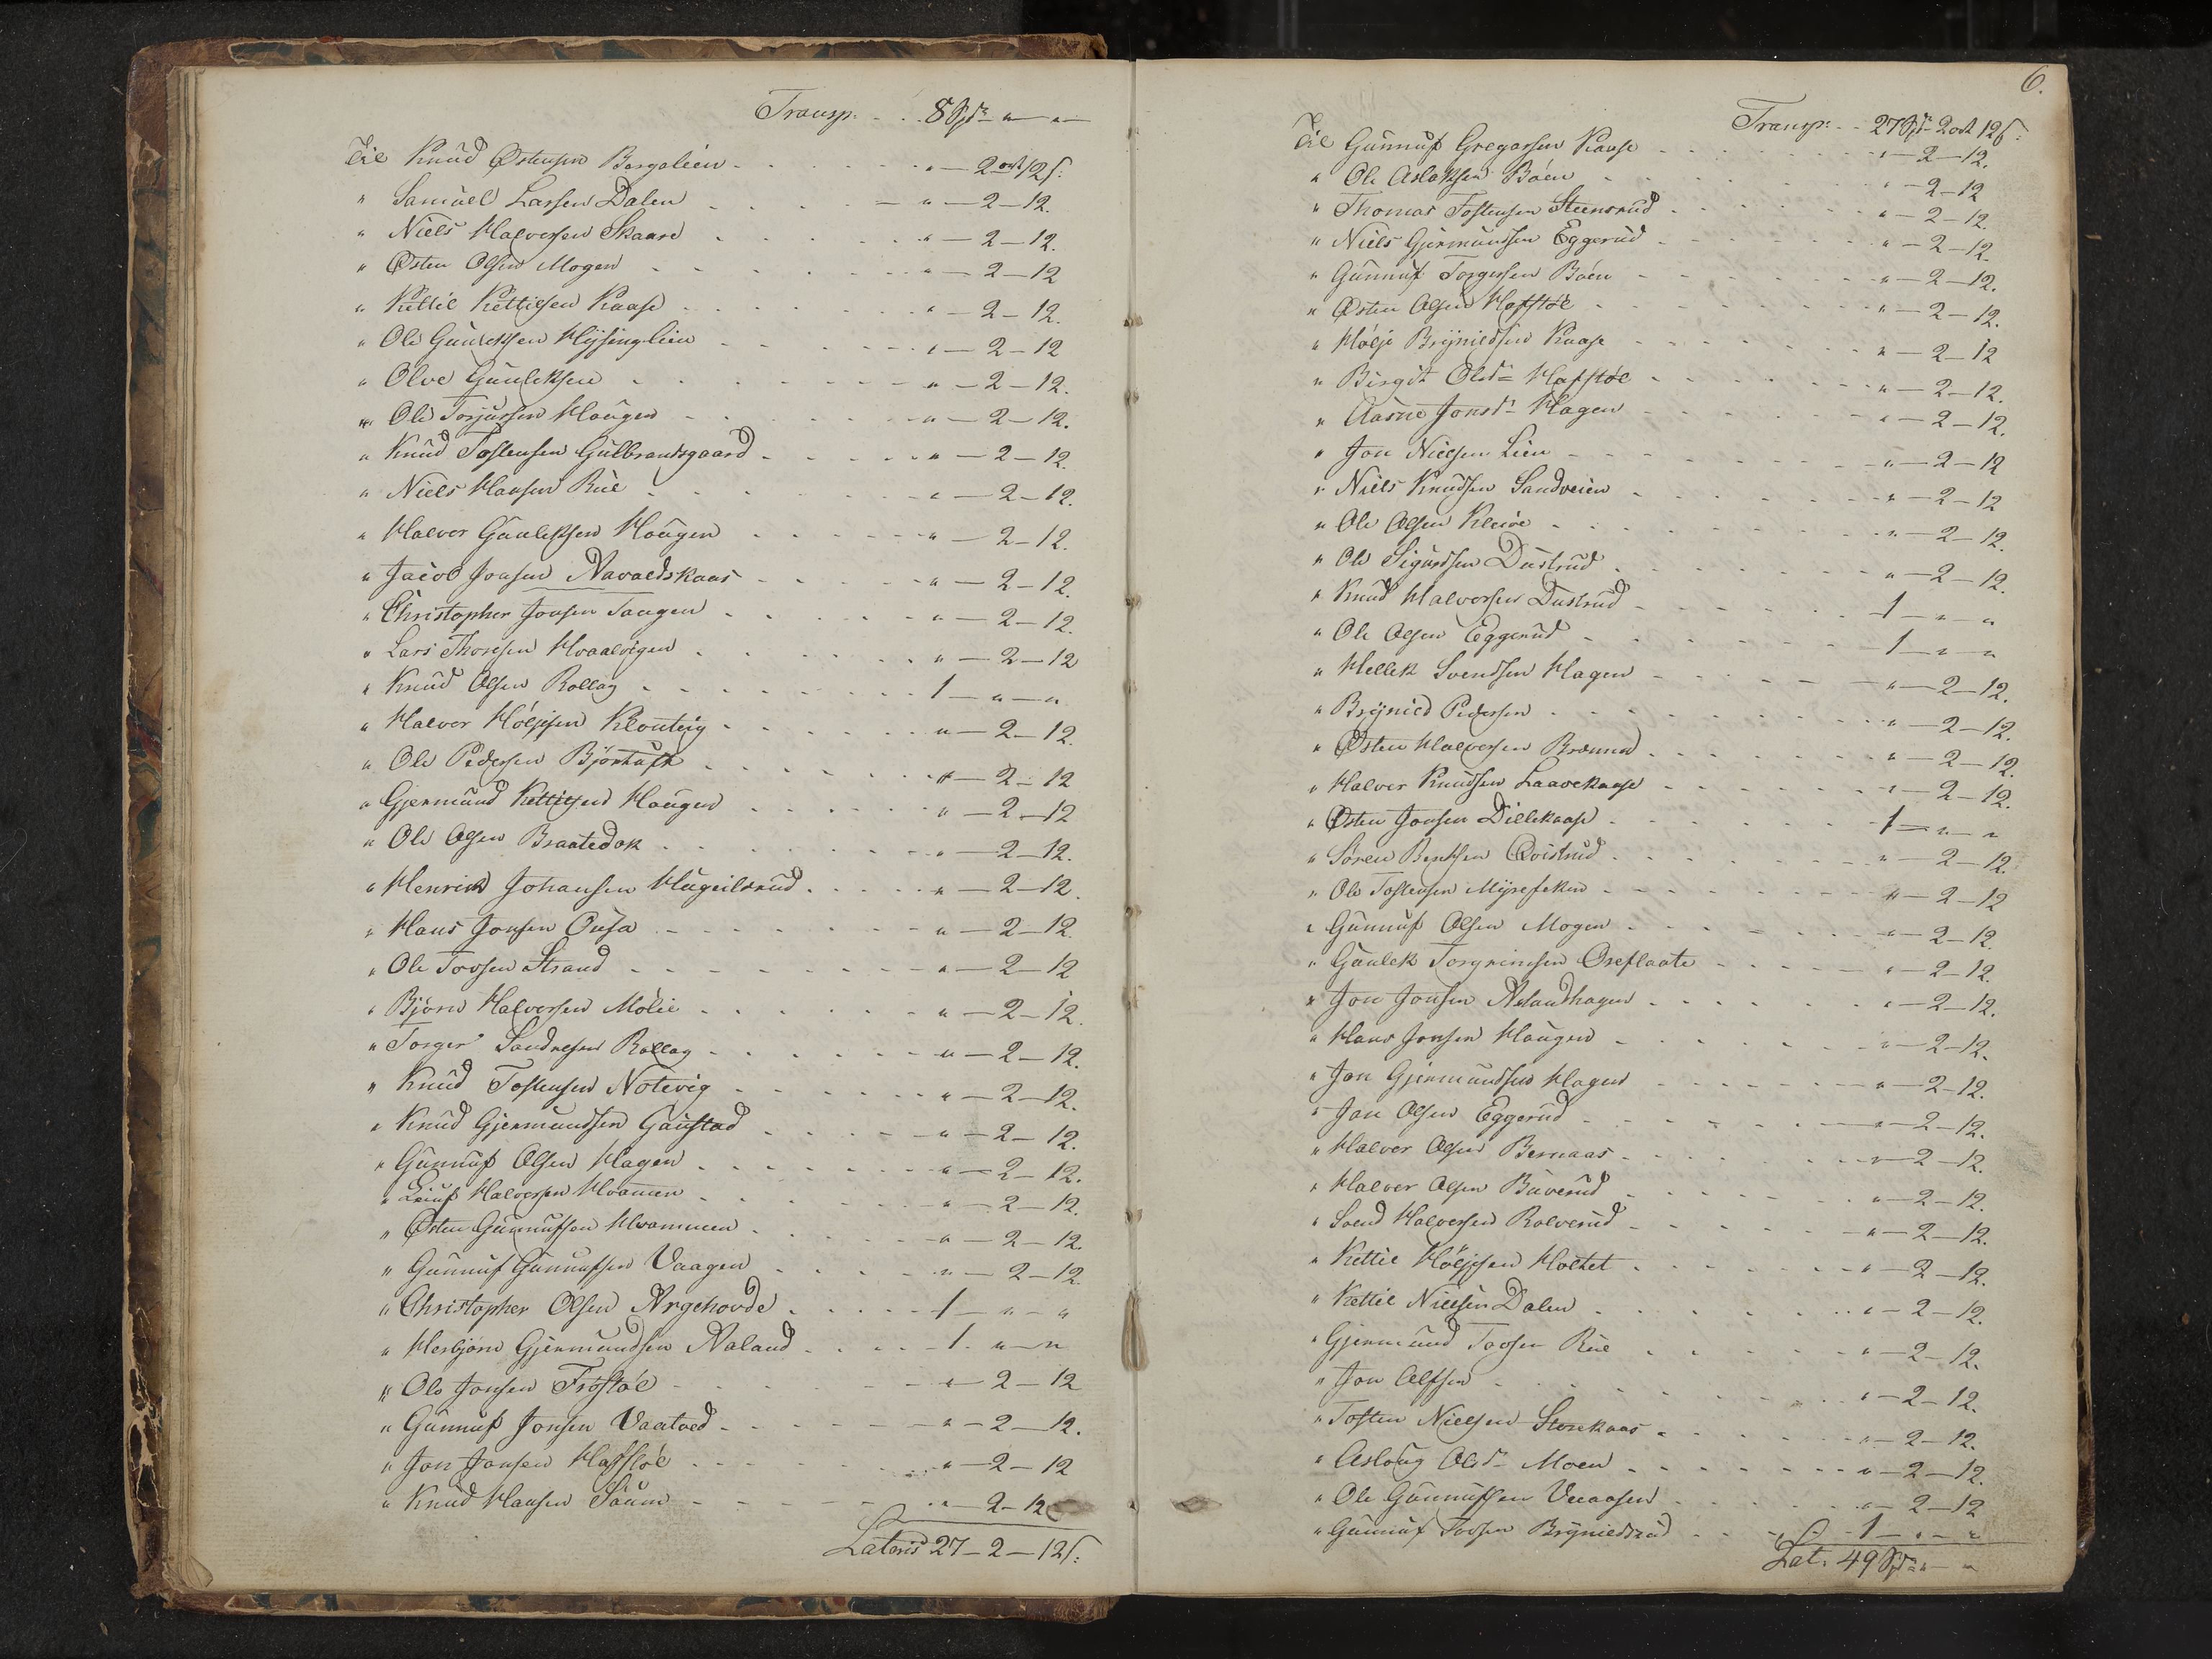 Transp. . . 8 Spd " — " —
Til Knud Østensen Borgalien . . . " — 2 ort 12 s:
" Samuel Larsen Dalen . . . " — 2 — 12.
" Niels Halvorsen Skaare . . . " — 2 — 12.
" Østen Olsen Mogen . . . " — 2 — 12
" Kettil Kettilsen Kaase . . . " — 2 — 12.
" Ole Gunleksen . . . " — 2 — 12
" Olve Gunleksen . . . " — 2 — 12.
" Ole Torjussen Haugen . . . " — 2 — 12.
" Knud Tostensen Gulbrandsgaard . . . " — 2 — 12.
" Niels Hansen Rue . . . " — 2 — 12.
" Halvor Gunleksen Haugen . . . " — 2 — 12.
" Jacob Jonsen Navaldskaas . . . " — 2 — 12.
" Christopher Jonsen Tangen . . . " — 2 — 12.
" Lars Thoresen Hvaalvigen . . . " — 2 — 12
" Knud Olsen Rollag . . . 1 — " — "
" Halvor Høljesen Klonteig . . . " — 2 — 12.
" Ole Pedersen Bjørtuft . . . " — 2 — 12
" Gjermund Kettilsen Haugen . . . " — 2 — 12
" Ole Olsen Braatedok . . . " — 2 — 12.
" Henrich Johansen . . . " — 2 — 12.
" Hans Jonsen . . . " — 2 — 12.
" Ole Tovsen Strand . . . " — 2 — 12
" Bjørn Halvorsen Mølie . . . " — 2 — 12.
" Torger Sandresen Rollag . . . " — 2 — 12.
" Knud Tostensen Notevig . . . " — 2 — 12.
" Knud Gjermundsen Gaustad . . . " — 2 — 12.
" Gunnuf Olsen Hagen . . . " — 2 — 12.
" Halvorsen Hvammen . . . " — 2 — 12.
" Østen Gunnufsen Hvammen . . . " — 2 — 12.
" Gunnuf Gunnufsen Vaagen . . . " — 2 — 12.
" Christopher Olsen Argehovde . . . 1 — " — "
" Herbjørn Gjermundsen Naland . . . 1. " — "
" Ole Jonsen Frøstøl . . . " — 2 — 12
" Gunnuf Jonsen . . . " — 2 — 12.
" Jon Jonsen Hafstøl . . . " — 2 — 12
" Knud Hansen . . . " — 2 — 12
Lateris 27 — 2 — 12 s:
6.
Transp: . . 27 Spd 2 ort 12 s:
Til Gunnuf Gregarsen Kaase . . . " — 2 — 12.
" Ole Aslaksen Bøen . . . " — 2 — 12
" Thomas Tostensen Steensrud . . . " — 2 — 12.
" Niels Gjermundsen Eggerud . . . " — 2 — 12.
" Gunnuf Torgersen Bøen . . . " — 2 — 12.
" Østen Olsen Hafstøl . . . " — 2 — 12.
" Hølje Brynildsen Kaase . . . " — 2 — 12
" Birgit Olsd Hafstøl . . . " — 2 — 12.
" Aasne Jonsd Hagen . . . " — 2 — 12.
" Jon Nielsen Lien . . . " — 2 — 12
" Niels Knudsen Sandveien . . . " — 2 — 12
" Ole Olsen . . . " — 2 — 12.
" Ole Sigurdsen Dustrud . . . " — 2 — 12.
" Knud Halvorsen Dustrud . . . 1 — " — "
" Ole Olsen Eggerud . . . 1 — " — "
" Hellek Svendsen Hagen . . . " — 2 — 12.
" Brynild Pedersen . . . " — 2 — 12.
" Østen Halvorsen . . . " — 2 — 12.
" Halvor Knudsen Laavekaase . . . " — 2 — 12.
" Østen Jonsen Dillekaase . . . 1 — " — "
" Søren Bentsen Qvistrud . . . " — 2 — 12.
" Ole Tostensen . . . " — 2 — 12
" Gunnuf Olsen Mogen . . . " — 2 — 12.
" Gunlek Torgrimsen Oreflaate . . . " — 2 — 12.
" Jon Jonsen Nalandhagen . . . " — 2 — 12.
" Hans Jonsen Haugen . . . " — 2 — 12.
" Jon Gjermundsen Hagen . . . " — 2 — 12.
" Jon Olsen Eggerud . . . " — 2 — 12.
" Halvor Olsen Bernaas . . . " — 2 — 12.
" Halvor Olsen Buverud . . . " — 2 — 12.
" Svend Halvorsen Rolverud . . . " — 2 — 12.
" Kettil Høljesen Holtet . . . " — 2 — 12.
" Kettil Nielsen Dalen . . . " — 2 — 12.
" Gjermund Tovsen Rue . . . " — 2 — 12.
" Jon Alfsen . . . " — 2 — 12.
" Tosten Nielsen Storekaas . . . " — 2 — 12.
" Aslaug Olsd Moen . . . " — 2 — 12.
" Ole Gunnufsen . . . " — 2 — 12
" Gunnuf Tovsen Brynildsrud . . . 1 — " — "
Lat. 49 Spd " — "